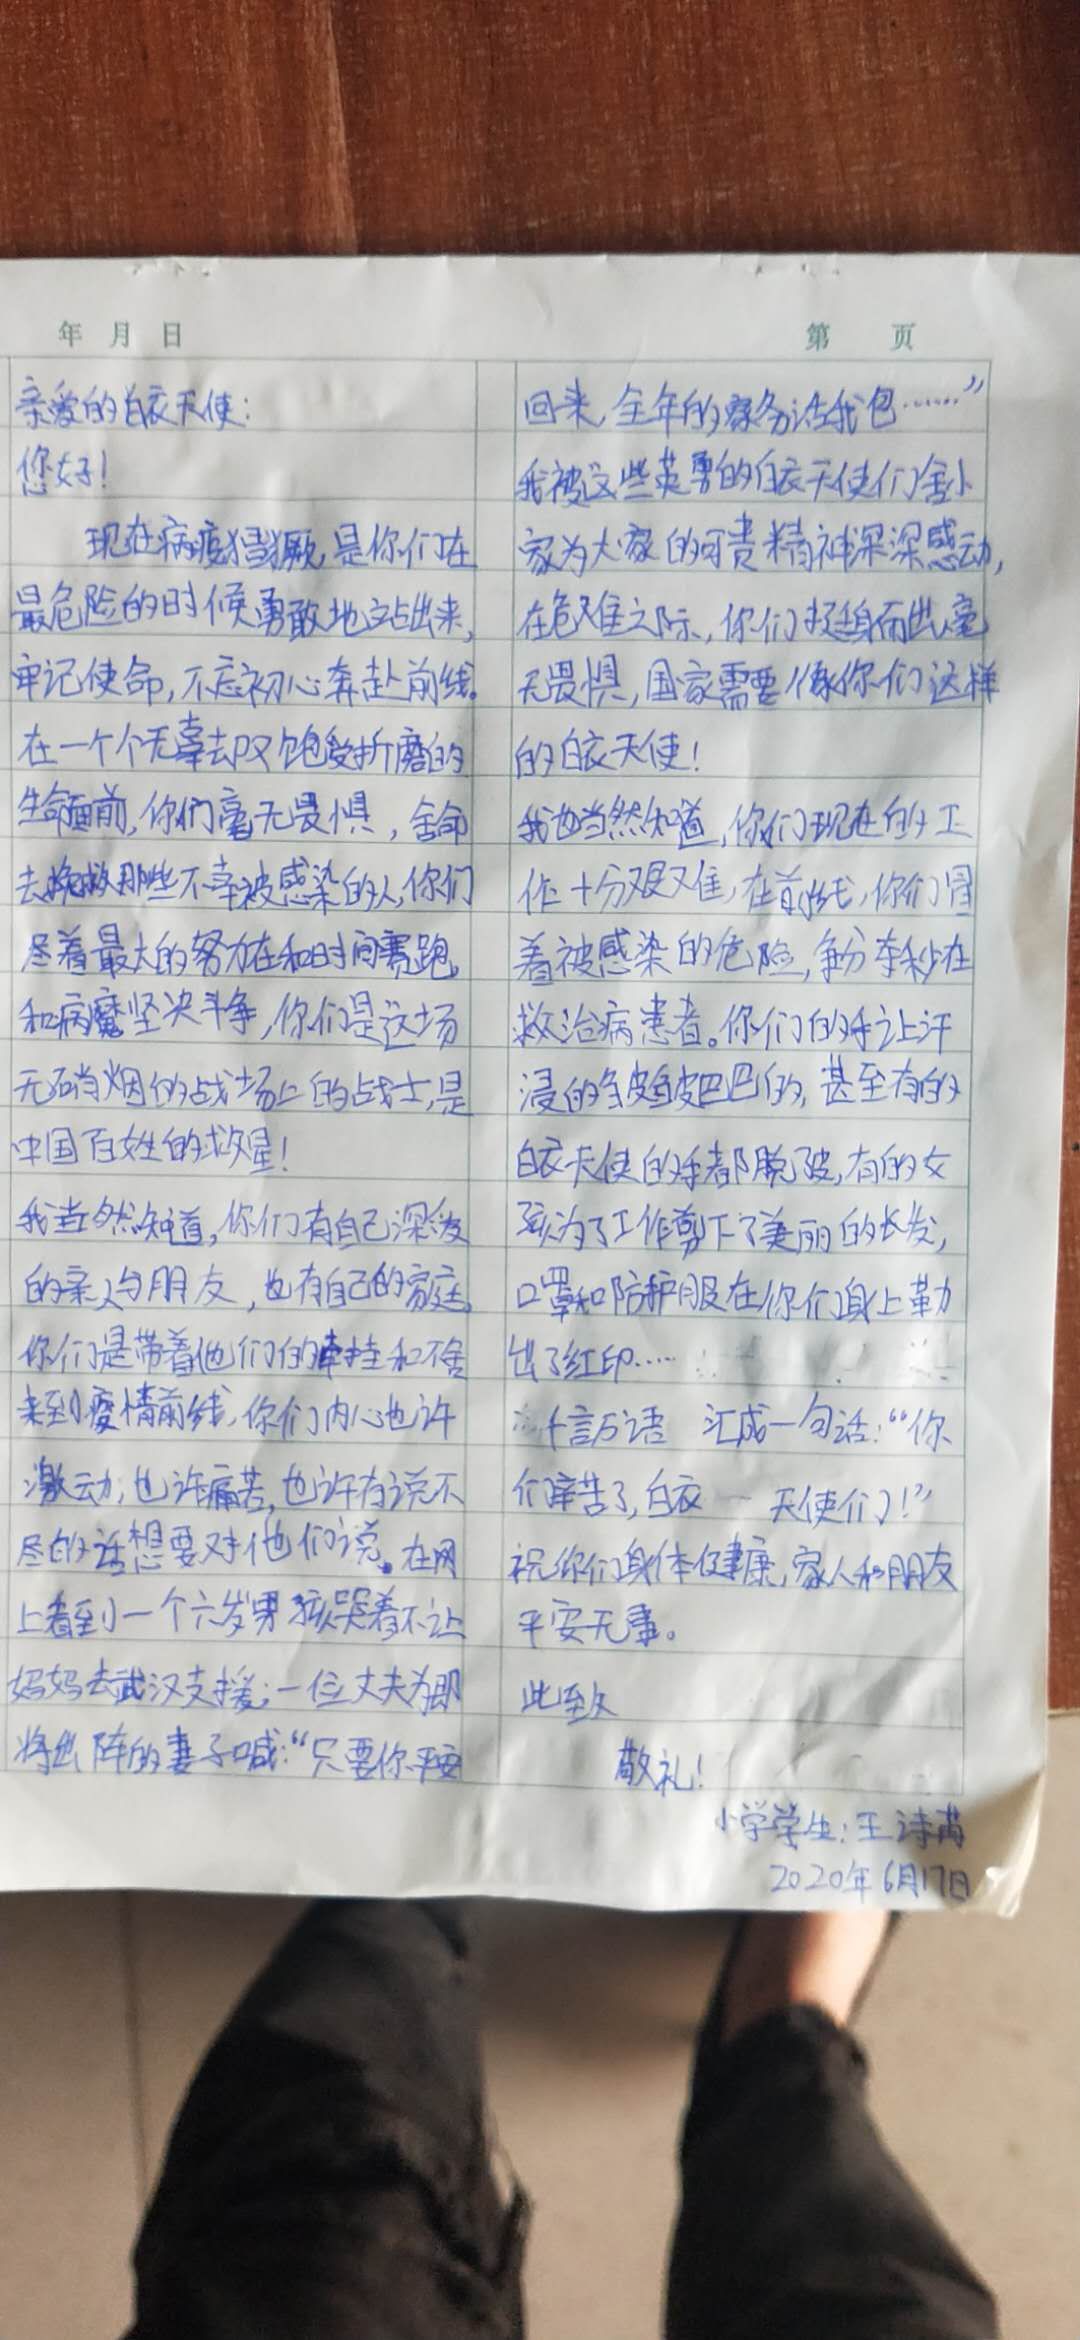 年 月 日
亲爱的白衣天使：
您好！
现在病疫猖獗，是你们在
最危险的时候勇敢地站出来，
牢记使命，不忘初心奔赴前线。
在一个个无辜去却又饱受折磨的
生命面前，你们毫无畏惧，舍命
去挽救那些不幸被感染的人，你们
尽着最大的努力在和时间赛跑，
和病魔坚决斗争，你们是这场
无硝烟的战场上的战士，是
中国百姓的救星！
我当然知道，你们有自己深爱
的亲人与朋友，也有自己的家庭，
你们是带着他们的牵挂和不舍
来到疫情前线，你们内心也许
激动；也许痛苦，也许有说不
尽的话想要对他们说。在网
上看到一个六岁男孩哭着不让
妈妈去武汉支援；一位丈夫为即
将出阵的妻子喊：“只要你平安
第 页
回来，全年的家务活我包……”
我被这些英勇的白衣天使们舍小
家为大家的可贵精神深深感动，
在危难之际，你们挺身而出毫
无畏惧，国家需要像你们这样
的白衣天使！
我也当然知道，你们现在的工
作十分艰难，在前线，你们冒
着被感染的危险，争分夺秒在
救治病患者。你们的手让汗
浸的皱皱巴巴的，甚至有的
白衣天使的手都脱了皮，有的女
孩为了工作剪下了美丽的长发，
口罩和防护服在你们身上勒
出了红印……
千言万语 汇成一句话：“你
们辛苦了，白衣 天使们！”
祝你们身体健康，家人和朋友
平安无事。
此至
敬礼！
小学学生：王诗
2020年6月17日